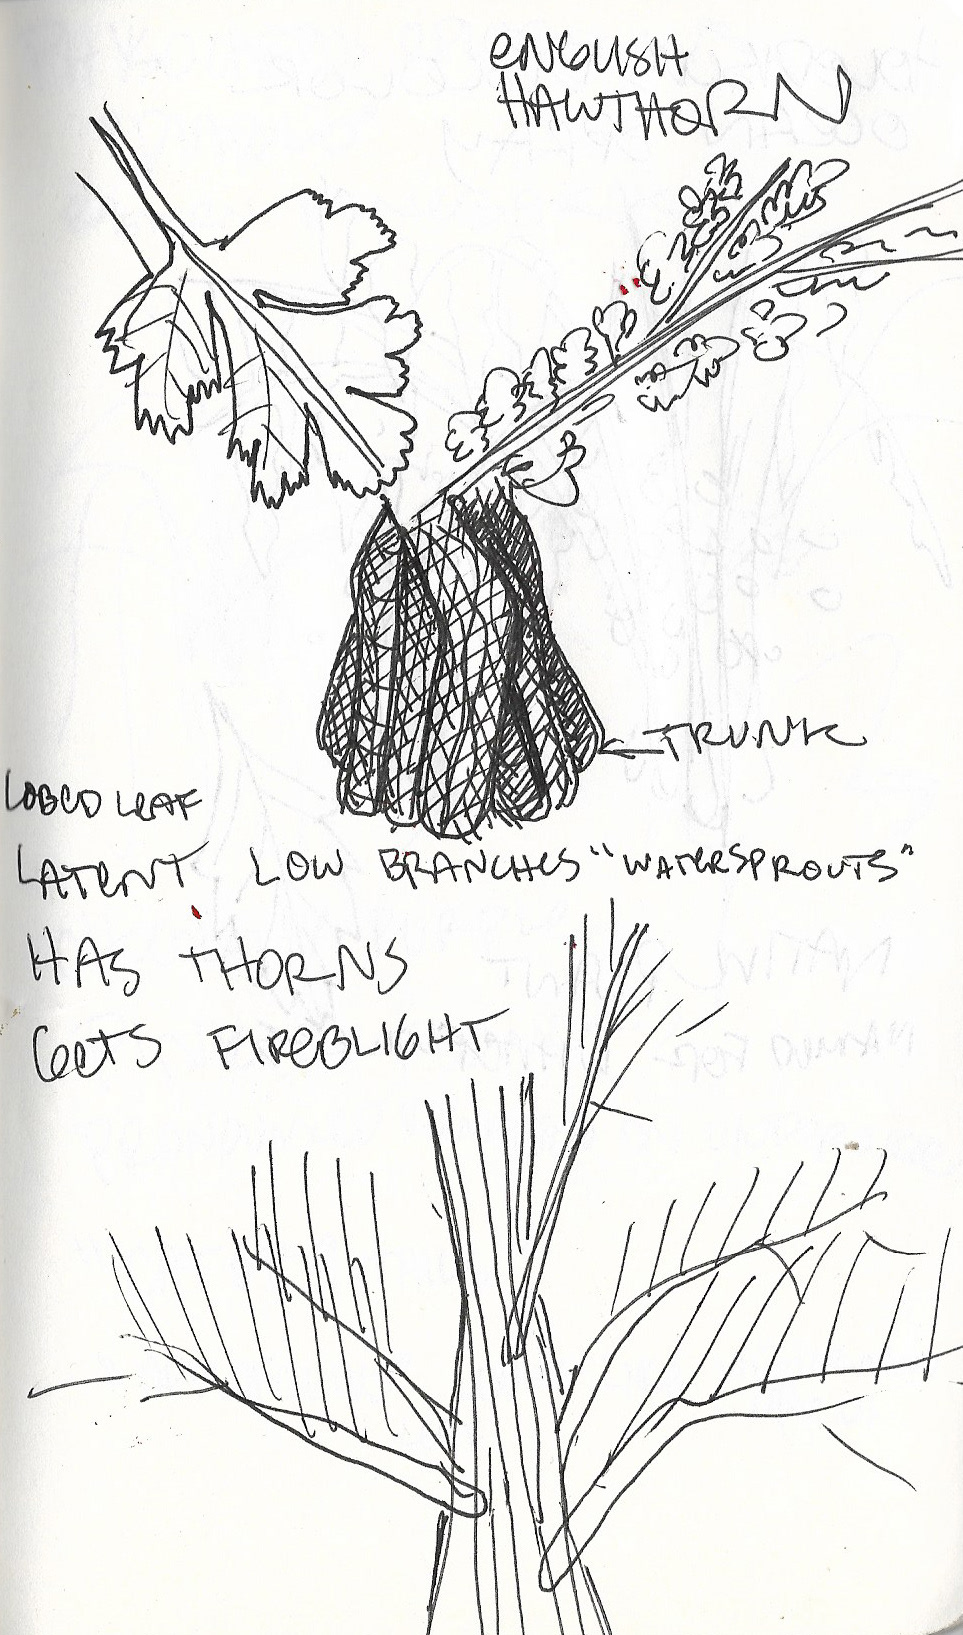 ENGLISH
HAWTHORN
TRUNK
LOBED LEAF
LATENT LOW BRANCHES "WATERSPROUTS"
HAS THORNS
GETS FIREBLIGHT